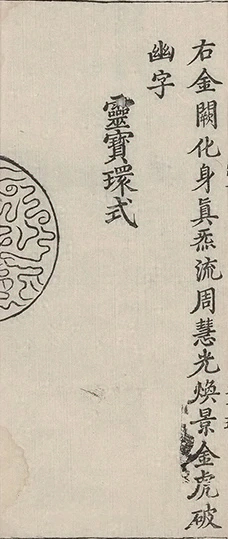 右金闕化身真炁流周慧光煥景金虎破
幽字
靈寶環式